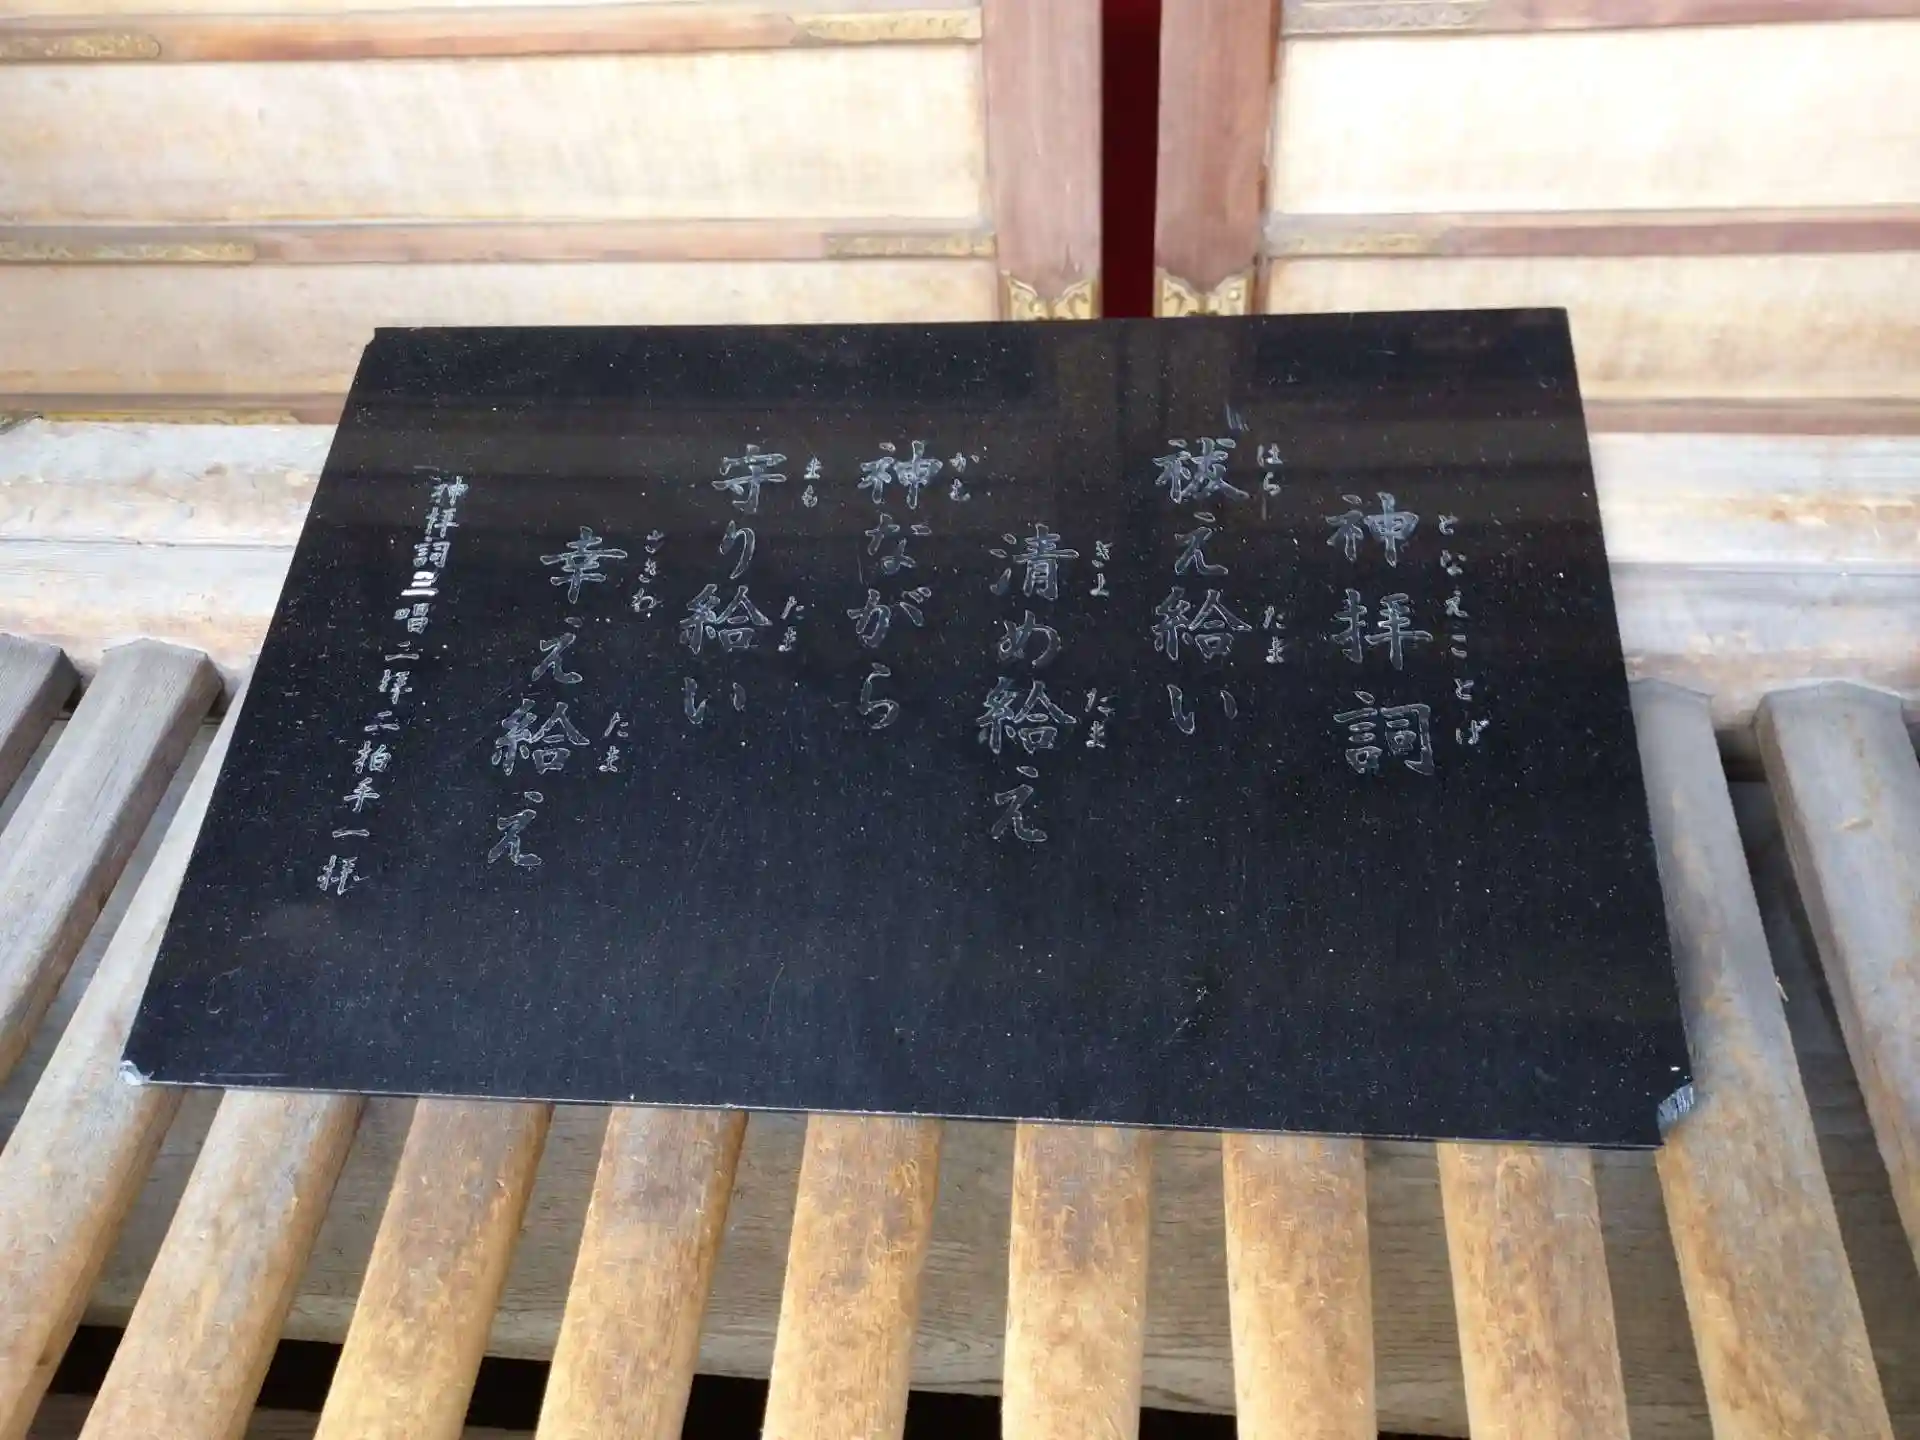 神拝詞
となえことば
祓え給い
はら
たま
清め給え
きよ
たま
神ながら
かむ
守り給い
まも
たま
幸え給え
さきわ
たま
神拝詞三唱二拝二拍手一拝